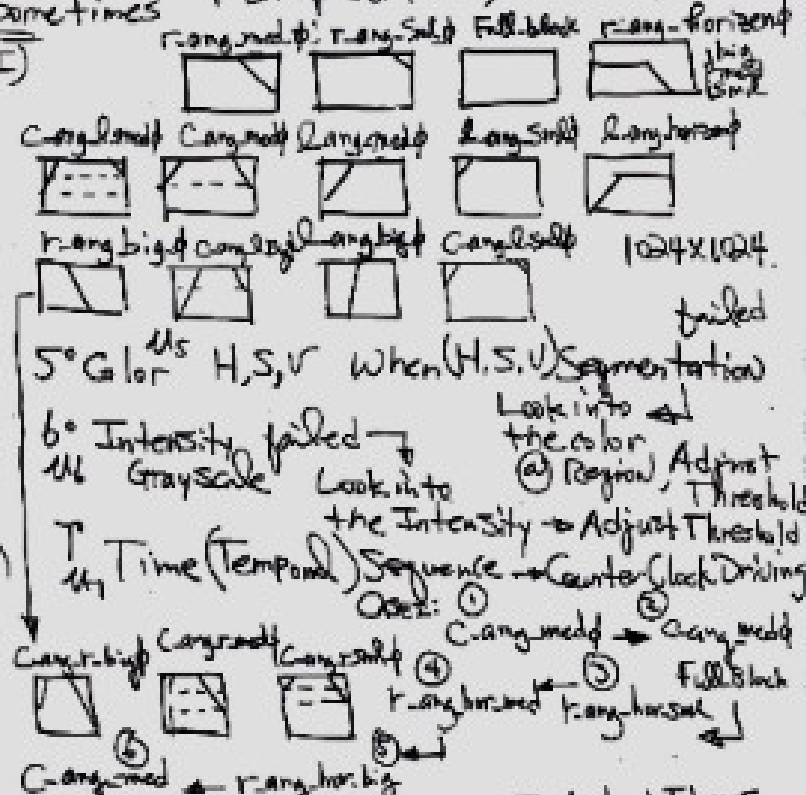 Sometimes
I)
r-ang-med-ϕ: r-ang-smlϕ Full-block r-ang-horizenϕ
big
med
sml
C-ang-l-medϕ C-ang-medϕ l-ang-medϕ l-ang-smlϕ l-ang-horzenϕ
r-ang-big-ϕ l-ang-bigϕ C-ang-l-smlϕ 1024x1024
failed
5° Color H,S,V When (H.S.V) Segmentation
Look into
the color
ⓐ Region, Adjust
Threshold
6° Intensity failed
Grayscale Look into
the Intensity → Adjust Threshold
Time (Temporal) Sequence → Counter Clock Driving
① ②
C-ang-medϕ → C-ang-medϕ
C-ang-r-bigϕ C-ang-r-medϕ C-ang-r-smlϕ ④ ③ Full Block
r-ang-hor-med ← r-ang-hor-sml
⑥ ⑤
C-ang-med ← r-ang-hor-big